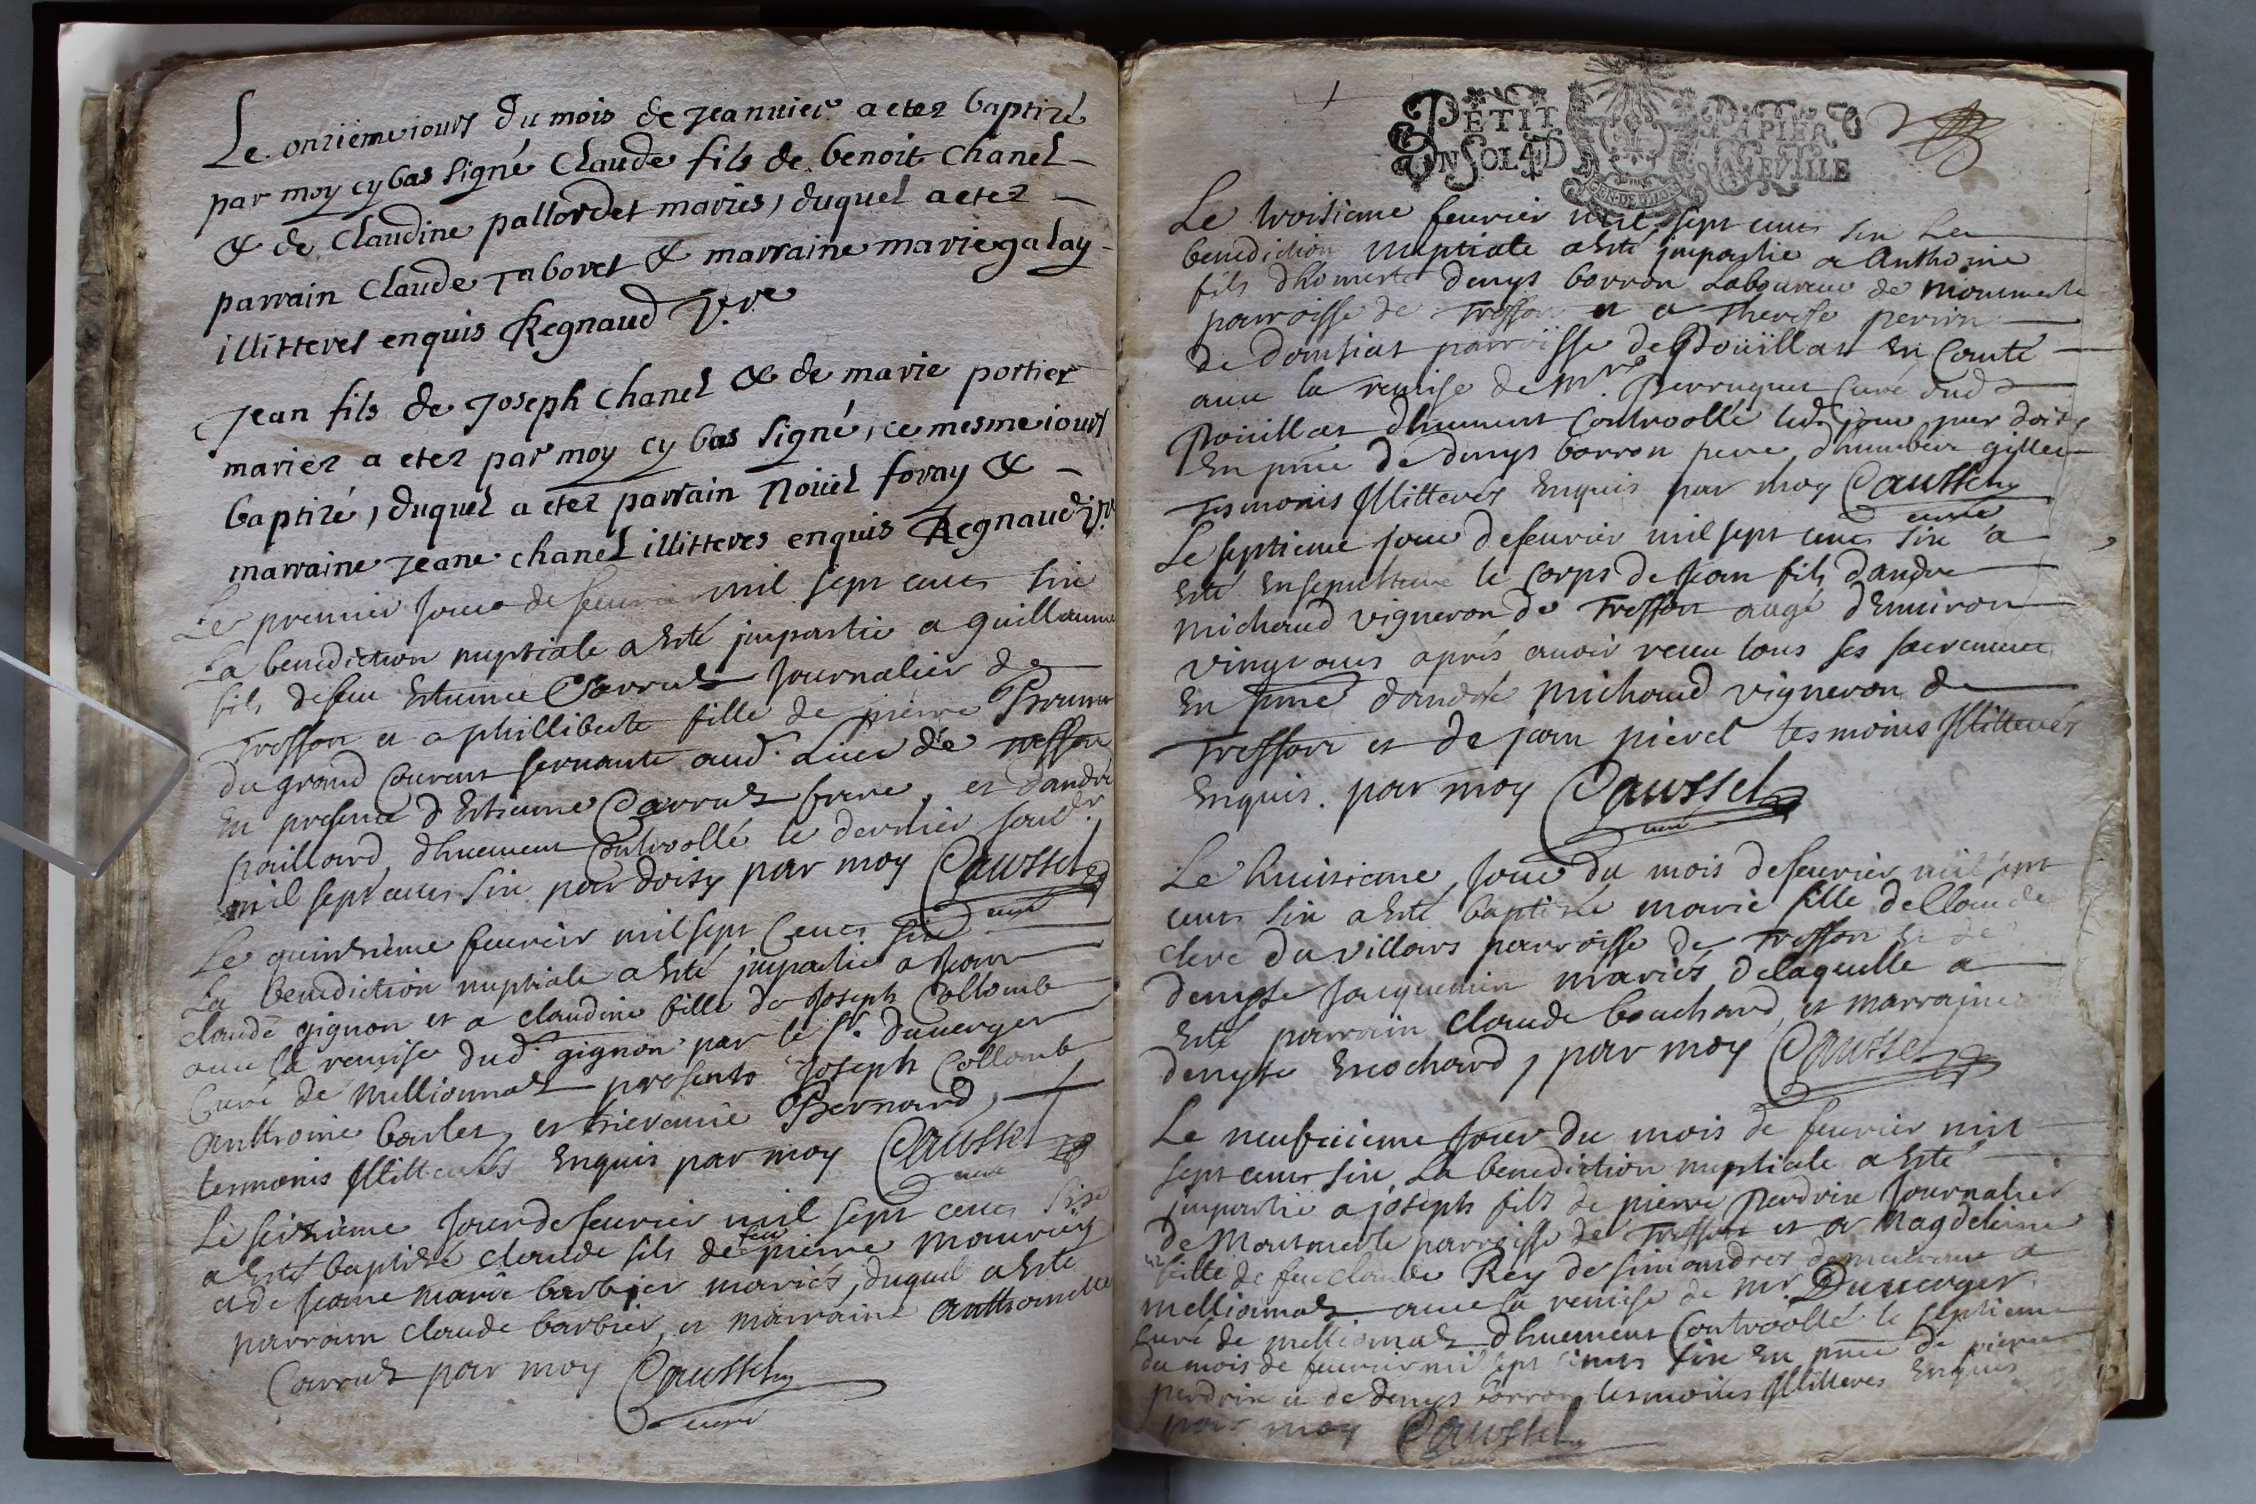 Le onziéme iours du mois de Jeanvier a etez baptizé
par moy cy bas signé Claude fils de benoit chanel
& de Claudine pallordet mariés, duquel a etez
parrain Claude Taboret & marraine marie galay
illitteres enquis Regnaud V.re
Jean fils de Joseph chanel & de marie portier
mariez a etez par moy cy bas signé, ce mesme iours
baptizé, duquel a etez parrain Noüel foray &
marraine Jeane chanel illitteres enquis Regnaud V.re
Le premier Jour de feurier mil sept cens six
La benediction nuptiale a esté impartie a guillaume
fils de feu Estienne Carruz Journalier de
Treffon et a philliberte fille de pierre
du grand courent servante aud. Lieu de Treffon
en presence d'Estienne Carruz frere, et d'andré
paillard, dhuement Controollé le dernier
mil sept cens six par doisy par moy Caussel
curé
Le quinzieme feurier mil sept Cens six
La benediction nuptiale a esté impartie a Jean
claude gignon et a claudine fille de Joseph Collomb
auec la remise dud. gignon par le Sr. Duuerger
Curé de Mellionnaz presents Joseph Collomb
anthoine et Bernard,
tesmoins Illitterés Enquis par moy Caussel
curé
Le seizieme Jour de feurier mil sept cens six
a esté baptizé claude fils de feu pierre
et de Jeanne Marie barbier mariés, duquel a esté
parrain claude barbier, et marraine anthoinette
Carruz par moy Caussel
curé
PETIT PAPIER
UN SOL 4 D LE FEVILLE
GEN. DE DIJON
Le troisieme feurier mil sept cens six La
benediction nuptiale a esté impartie a Anthoine
fils d'honneste denys borron Laboureur de
parroisse de Treffon et a Therese perrin
de domsiat parroisse de Poüillat en Comté
auec la remise de Mre. Perruquet Curé dud
Poüillat dhuement Controollé led. jour par doisy
En pnce de denys borron pere, d'humbert gillet
Tesmoins Illitterés Enquis par moy Caussel
curé
Le septieme Jour de feurier mil sept cens six a
esté Ensepulturé le Corps de Jean fils d'andre
Michaud vigneron de Treffon aagé d'Enuiron
vingt ans aprés auoir receu tous ses sacremens
En pnce d'andré Michaud vigneron de
Treffon et de jean tesmoins Illitterés
Enquis. par moy Caussel
curé
Le huitsieme Jour du mois de feurier mil sept
cens six a esté baptizée marie fille de Claude
clerc du villars parroisse de Treffon et de
denyse Jacquemin mariés delaquelle a
esté parrain claude bouchard, et marraine
denyse bochard, par moy Caussel
Le neufuieme Jour du mois de feurier mil
sept cens six, La benediction nuptiale a esté
impartie a joseph fils de pierre Perdrix Journalier
de Montmerle parroisse de Treffon et a Magdeleine
fille de feu claude Rey de simandres demeurant a
Mellionnaz auec la remise de Mr. Duuerger
curé de mellionnaz dhuement Controollé le septieme
du mois de feurier mil sept cens six En pnce de pierre
perdrix et de denys borron tesmoins Illitterés Enquis
par moy Caussel